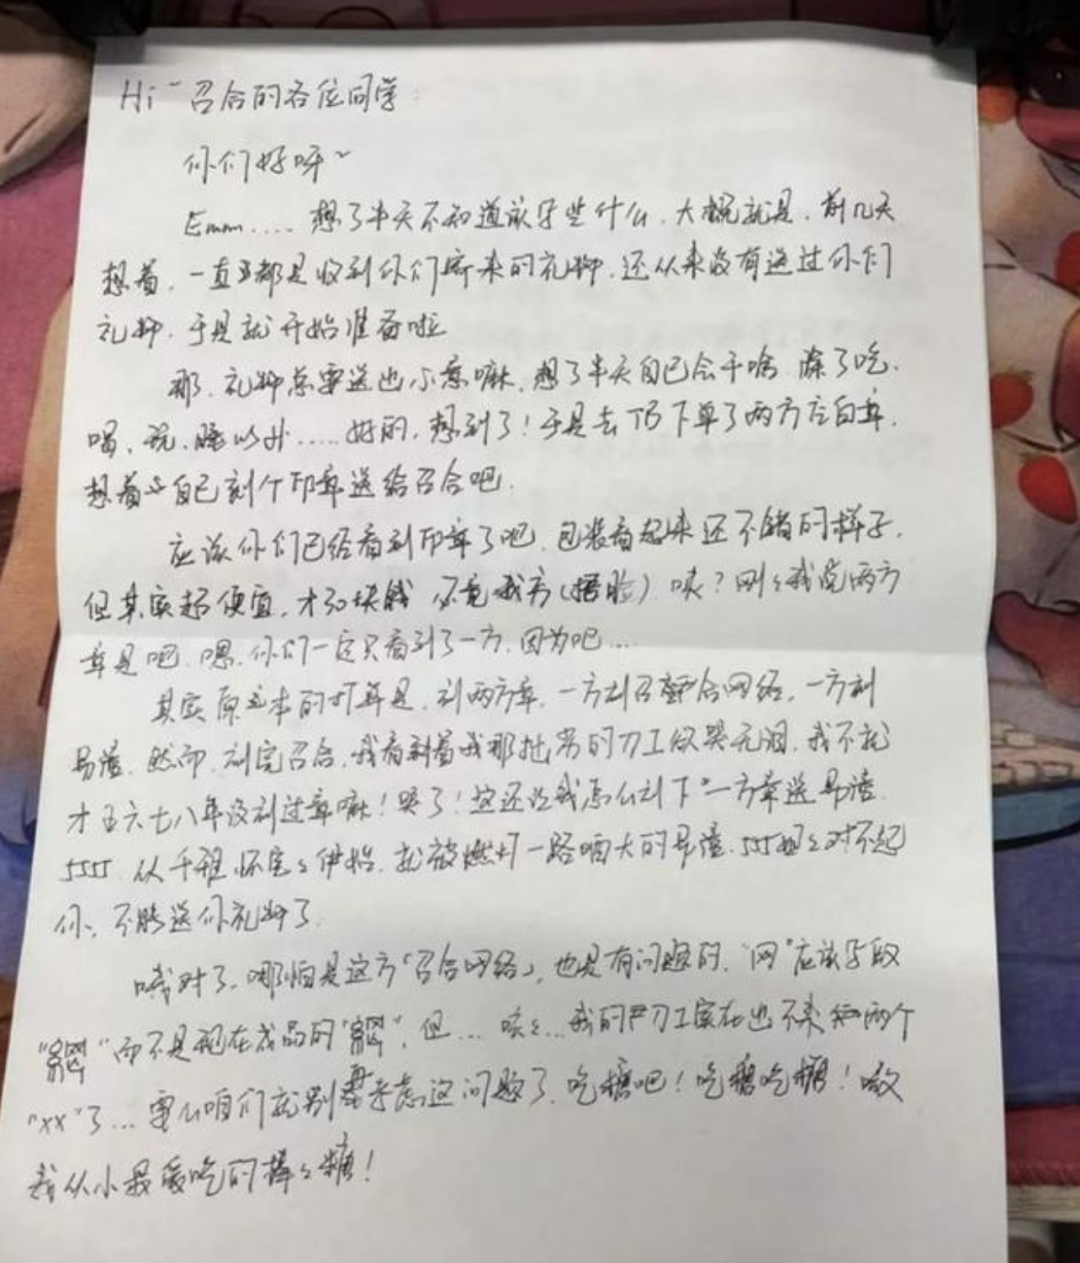 Hi~召合的各位同学:
你们好呀~
Emm.... 想了半天不知道该写些什么.大概就是.前几天
想着.一直都是收到你们寄来的礼物.还从来没有送过你们
礼物.于是就开始准备啦
那.礼物总要送心意嘛.想了半天自己会干啥.除了吃.
喝.玩.睡以外.....好的.想到了!于是去TB下单了两方空白章.
想着自己刻个印章送给召合吧.
应该你们已经看到印章了吧.包装看起来还不错的样子.
但其实超便宜.才30块钱 不竟我穷(捂脸).咦?刚刚我说两方
章是吧.嗯.你们一定只看到了一方.因为吧....
其实原本的打算是.刻两方章.一方刻召合网络.一方刻
易潼.然而.刻完召合.我看着我那拙劣的刀工欲哭无泪.我不就
才五六七八年没刻过章嘛!哭了!这还让我怎么刻下一方章送易潼.
5555.从千翎.怀宝々伊始.就被燃灯一路喃大的易潼.555姐々对不起
你.不能送你礼物了.
哦对了.哪怕是这方「召合网络」.也是有问题的."网"应该写做
" "而不是现在成品的" ".但...咦々...我的刀工实在也不来和两个
"××"了...要么咱们就别再考虑这问题了.吃糖吧!吃糖吃糖!嗷
我从小最爱吃的棒々糖!